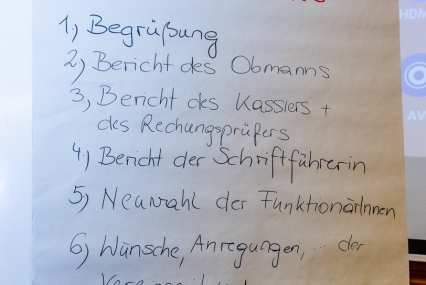 1) Begrüßung
2) Bericht des Obmanns
3) Bericht des Kassiers +
des Rechungsprüfers
4) Bericht der Schriftführerin
5) Neuwahl der FunktionärInnen
6) Wünsche, Anregungen, ... der
HDM
AV